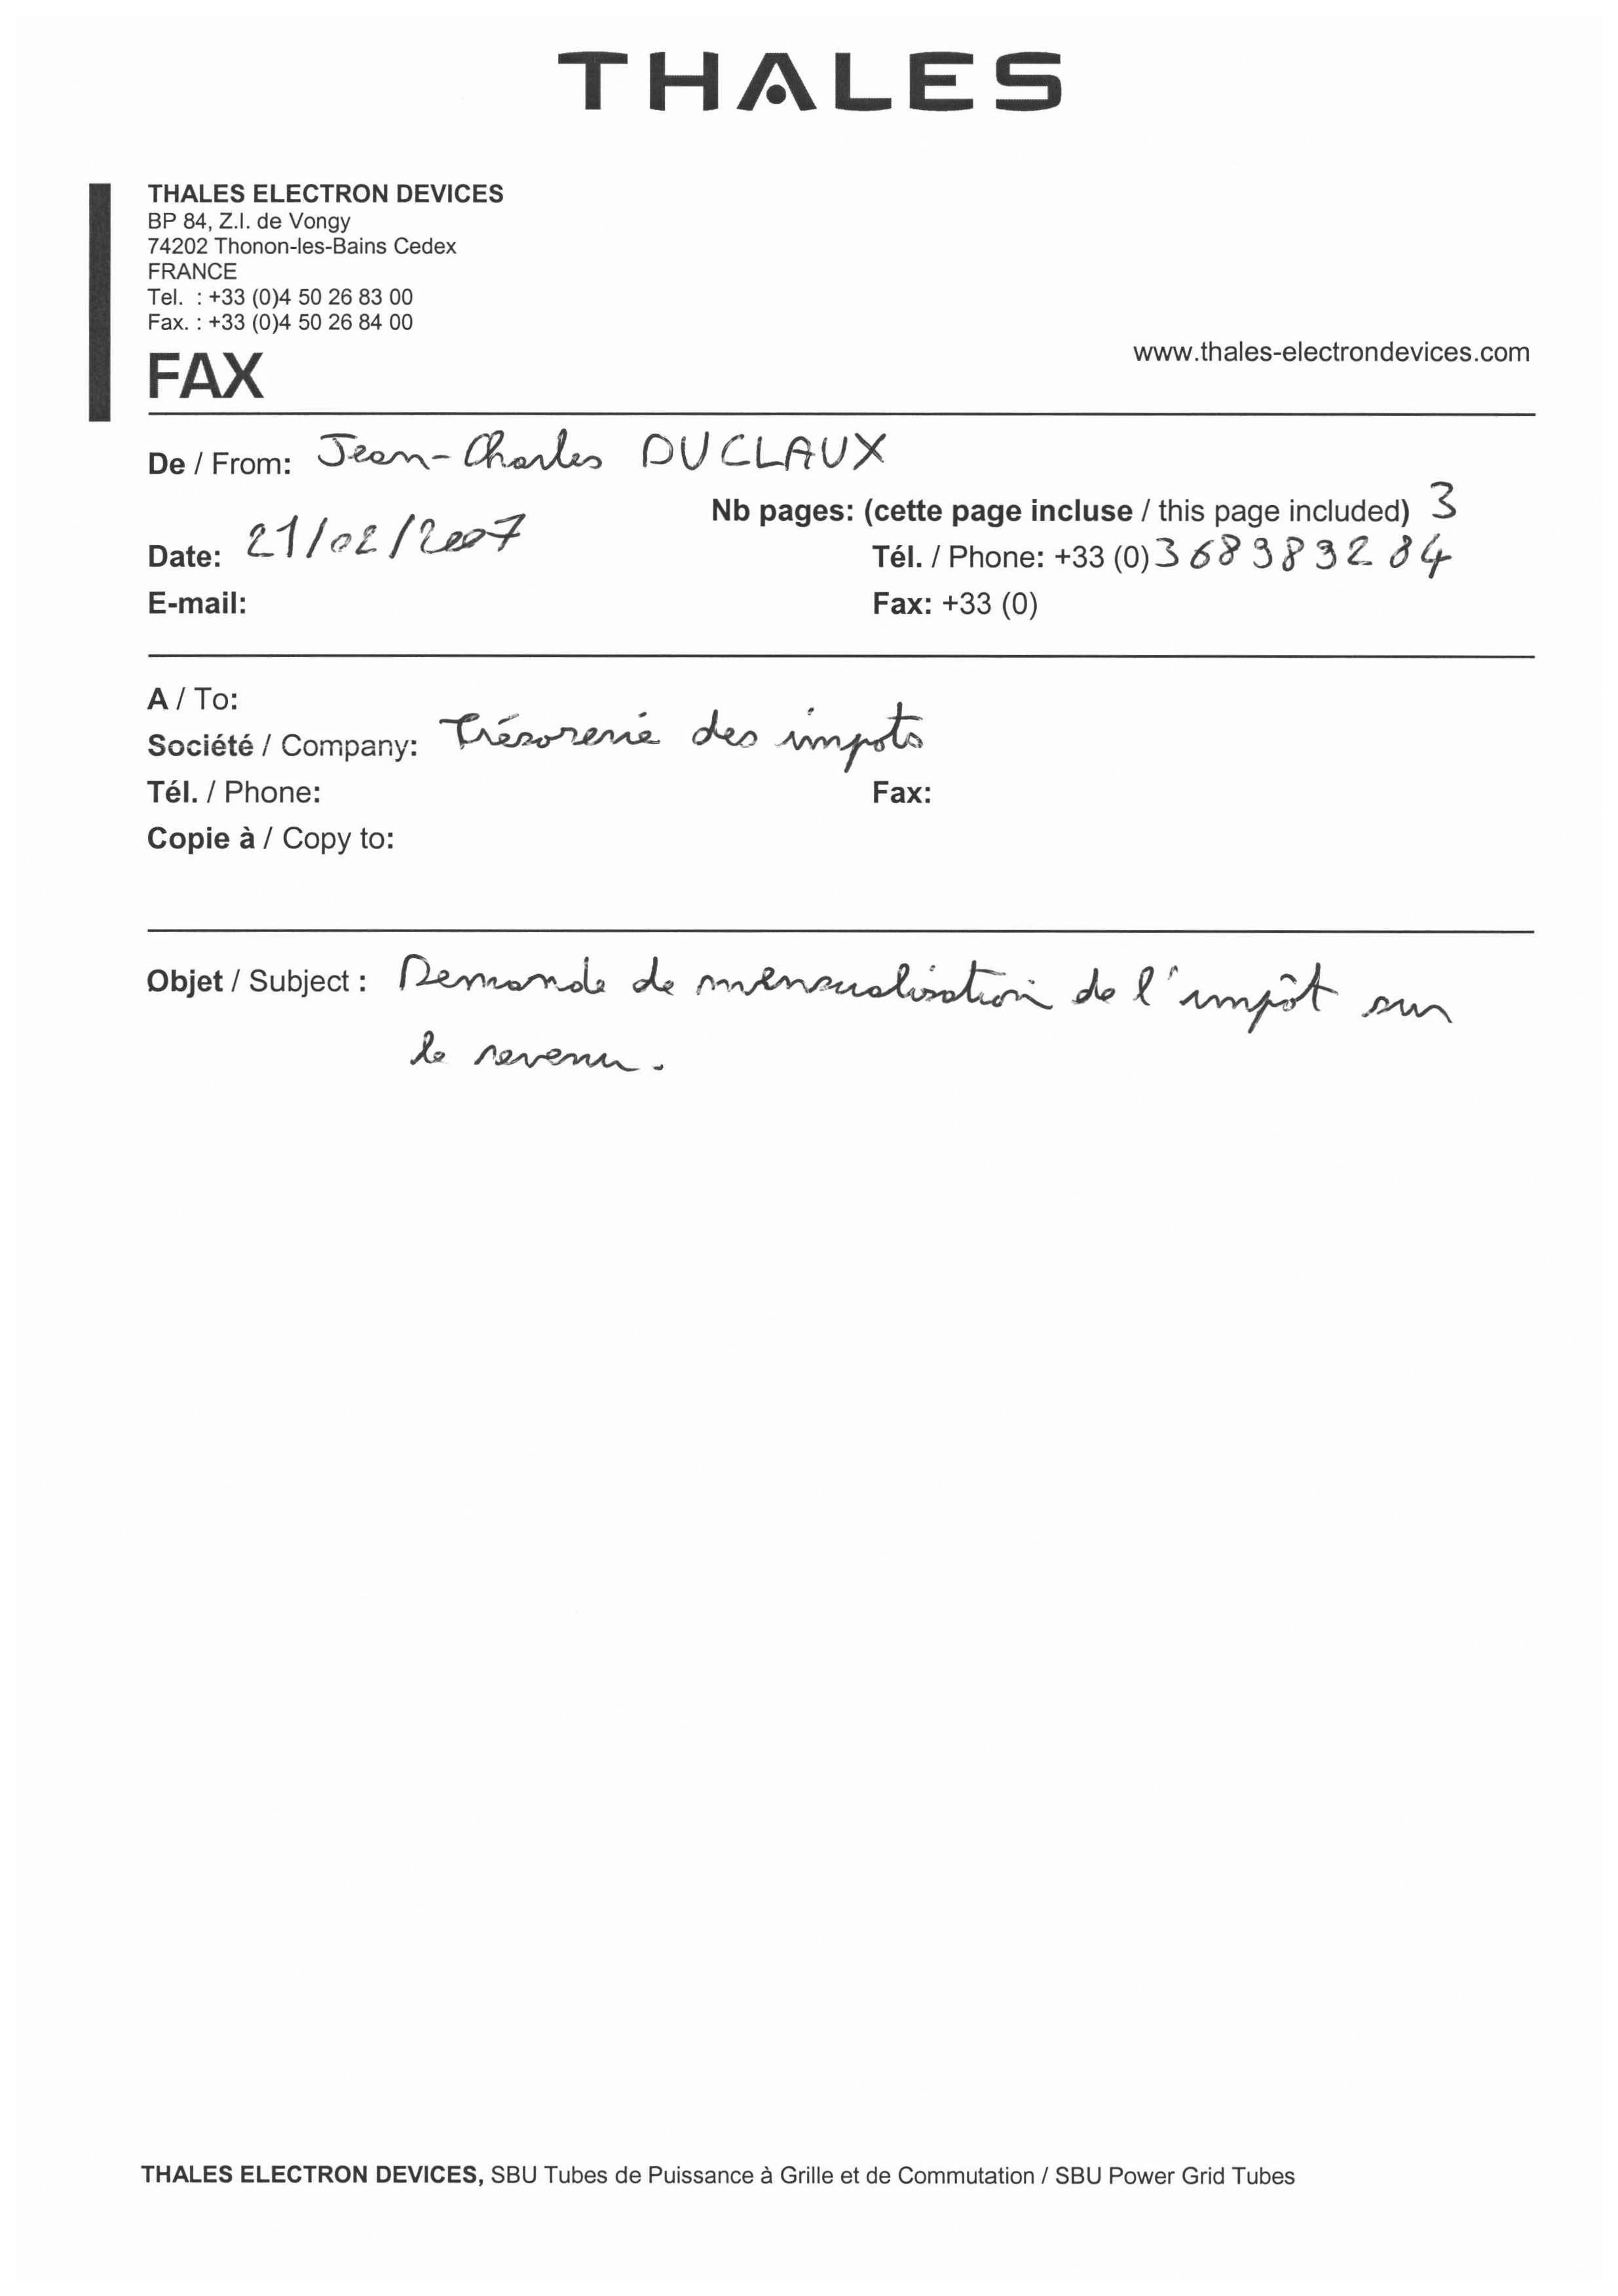 THALES
THALES ELECTRON DEVICES
BP 84, Z.I. de Vongy
74202 Thonon-les-Bains Cedex
FRANCE
Tel. : +33 (0)4 50 26 83 00
Fax. : +33 (0)4 50 26 84 00
www.thales-electrondevices.com
FAX
De / From: Jean-Charles DUCLAUX
Nb pages: (cette page incluse / this page included) 3
Date: 21/02/2007
Tél. / Phone: +33 (0) 3 68 98 32 84
E-mail:
Fax: +33 (0)
A / To:
Société / Company: Trésorerie des impots
Tél. / Phone:
Fax:
Copie à / Copy to:
Objet / Subject : Demande de mensualisation de l'impôt sur
le revenu.
THALES ELECTRON DEVICES, SBU Tubes de Puissance à Grille et de Commutation / SBU Power Grid Tubes